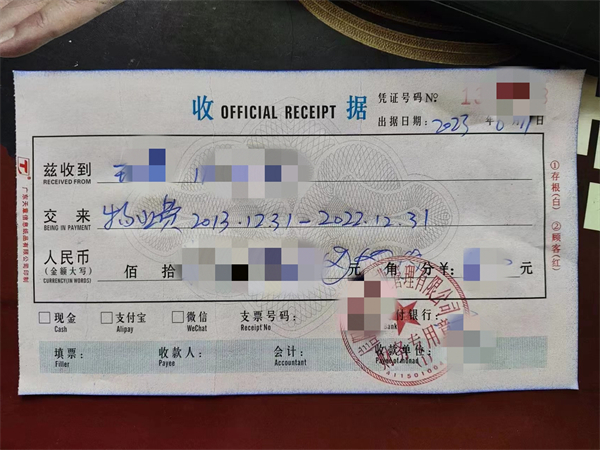 收 OFFICIAL RECEIPT 据
凭证号码 №
出据日期: 2023 年 月 日
兹收到
RECEIVED FROM
交 来 物业费 2013.12.31-2022.12.31
BEING IN PAYMENT
人民币
(金额大写)
CURRENCY(IN WORDS)
佰 拾 元 角 分¥: 元
现金 支付宝 微信 支票号码: 付银行:
Cash Alipay WeChat Receipt No Bank
填票: 收款人: 会计: 收款单位:
Filler Payee Accountant
管理有限公司
专用章
①存根(白) ②顾客(红)